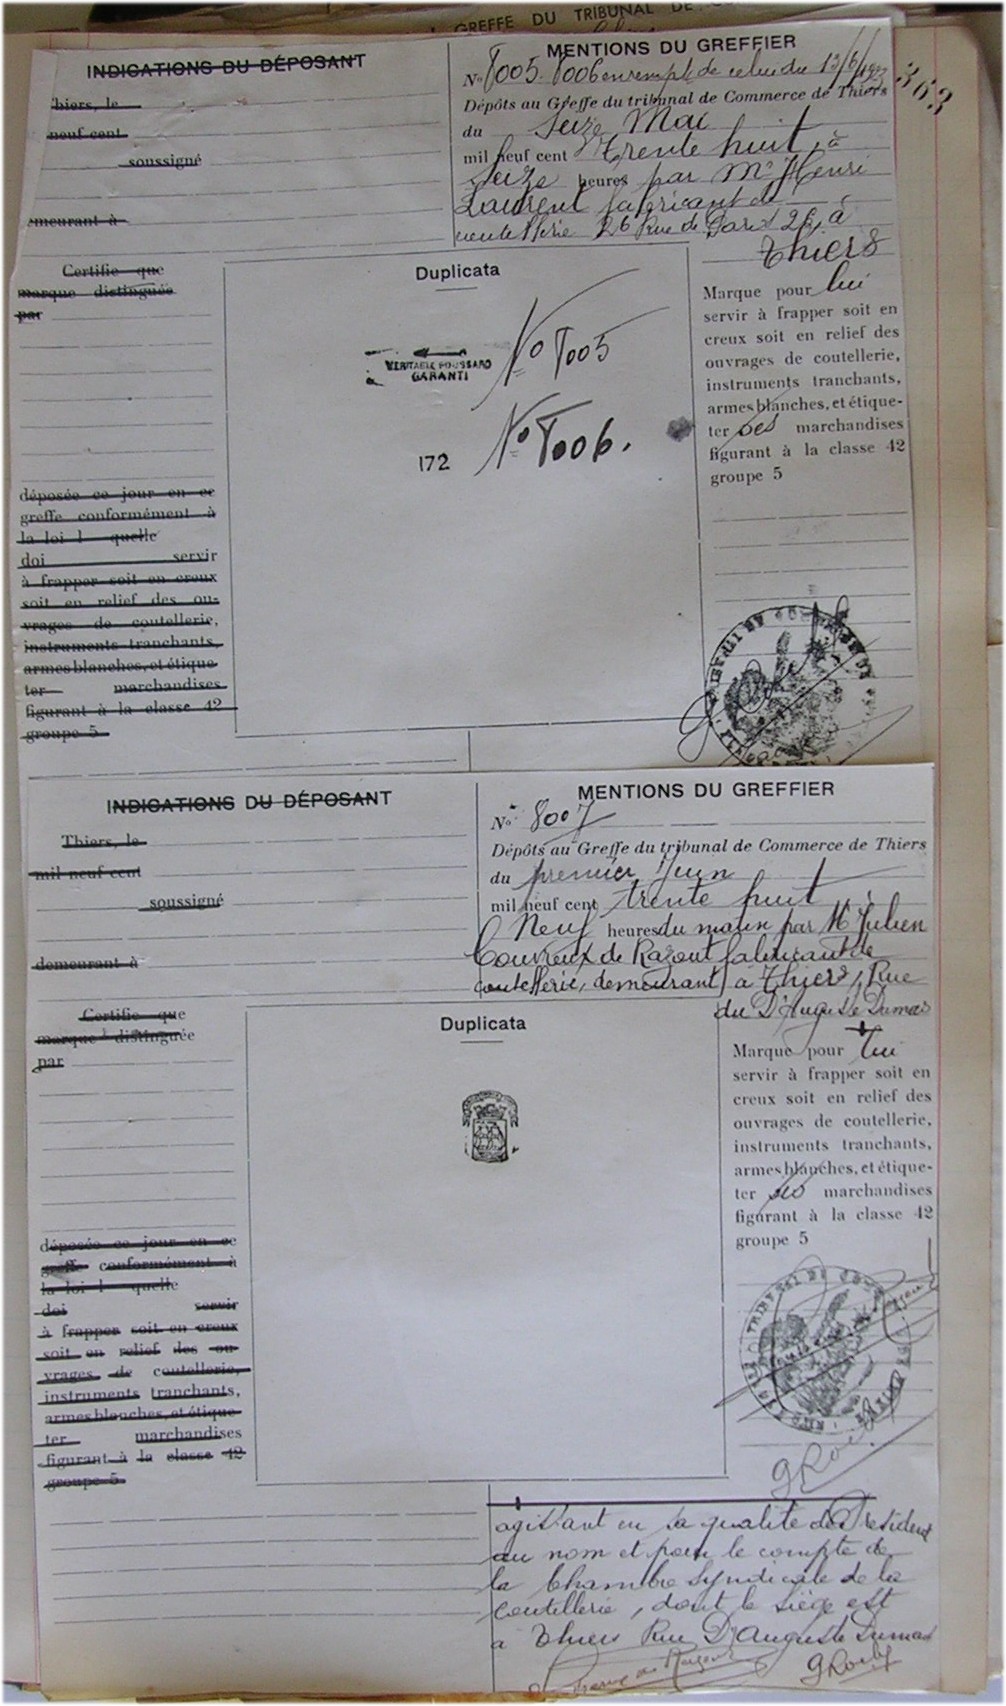 GREFFE DU TRIBUNAL DE
363
INDICATIONS DU DÉPOSANT
Thiers, le
neuf cent
soussigné
demeurant à
Certifie que
marque distinguée
par
déposée ce jour en ce
greffe conformément à
la loi l quelle
doi servir
à frapper soit en creux
soit en relief des ou-
vrages de coutellerie,
instruments tranchants,
armes blanches, et étique-
ter marchandises
figurant à la classe 42
groupe 5
MENTIONS DU GREFFIER
No 8005. 8006 en rempt de celui du 13/6/1923
Dépôts au Greffe du tribunal de Commerce de Thiers
du Seize Mai
mil neuf cent Trente huit, à
Seize heures par Mr Henri
Laurent fabricant de
coutellerie 26 Rue de Barel 26, à
Thiers
Duplicata
VERITABLE POUSSARD
GARANTI
No 8005
172
No 8006.
Marque pour lui
servir à frapper soit en
creux soit en relief des
ouvrages de coutellerie,
instruments tranchants,
armes blanches, et étique-
ter ses marchandises
figurant à la classe 42
groupe 5
INDICATIONS DU DÉPOSANT
Thiers, le
mil neuf cent
soussigné
demeurant à
Certifie que
marque distinguée
par
déposée ce jour en ce
greffe conformément à
la loi l quelle
doi servir
à frapper soit en creux
soit en relief des ou-
vrages de coutellerie,
instruments tranchants,
armes blanches, et étique-
ter marchandises
figurant à la classe 42
groupe 5
MENTIONS DU GREFFIER
No 8007
Dépôts au Greffe du tribunal de Commerce de Thiers
du premier Juin
mil neuf cent trente huit, à
Neuf heures du matin par Mr Julien
Couvreux de Razout fabricant de
coutellerie, demeurant à Thiers, Rue
du Dr Auguste Dumas
Duplicata
Marque pour lui
servir à frapper soit en
creux soit en relief des
ouvrages de coutellerie,
instruments tranchants,
armes blanches, et étique-
ter ses marchandises
figurant à la classe 42
groupe 5
TRIBUNAL DE COMMERCE DE THIERS
agissant en sa qualité de Président
au nom et pour le compte de
la Chambre Syndicale de la
Coutellerie, dont le siège est
à Thiers Rue Dr Auguste Dumas